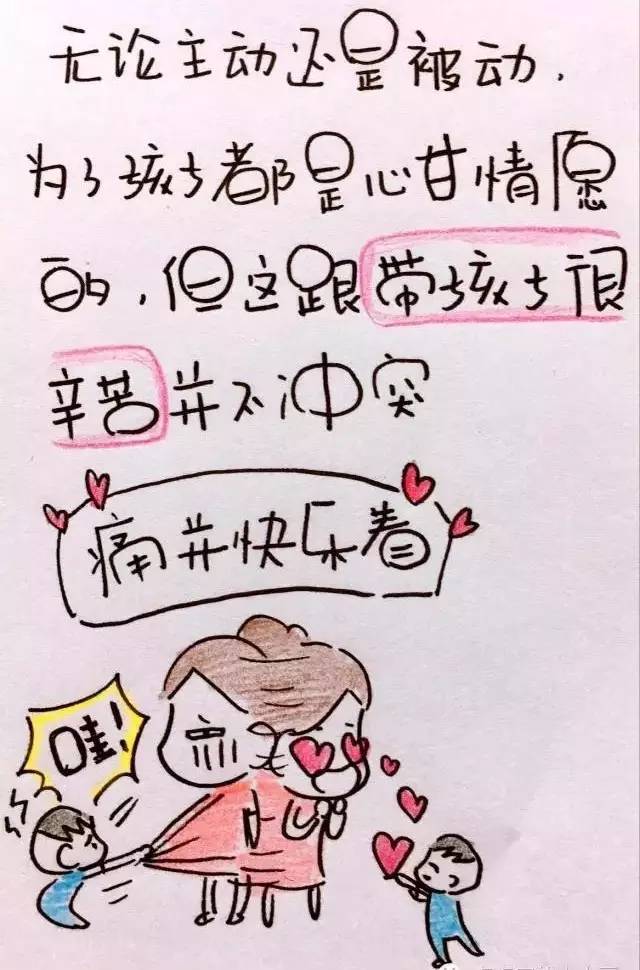 无论主动还是被动，
为了孩子都是心甘情愿
的，但这跟带孩子很
辛苦并不冲突
痛并快乐着
哇！